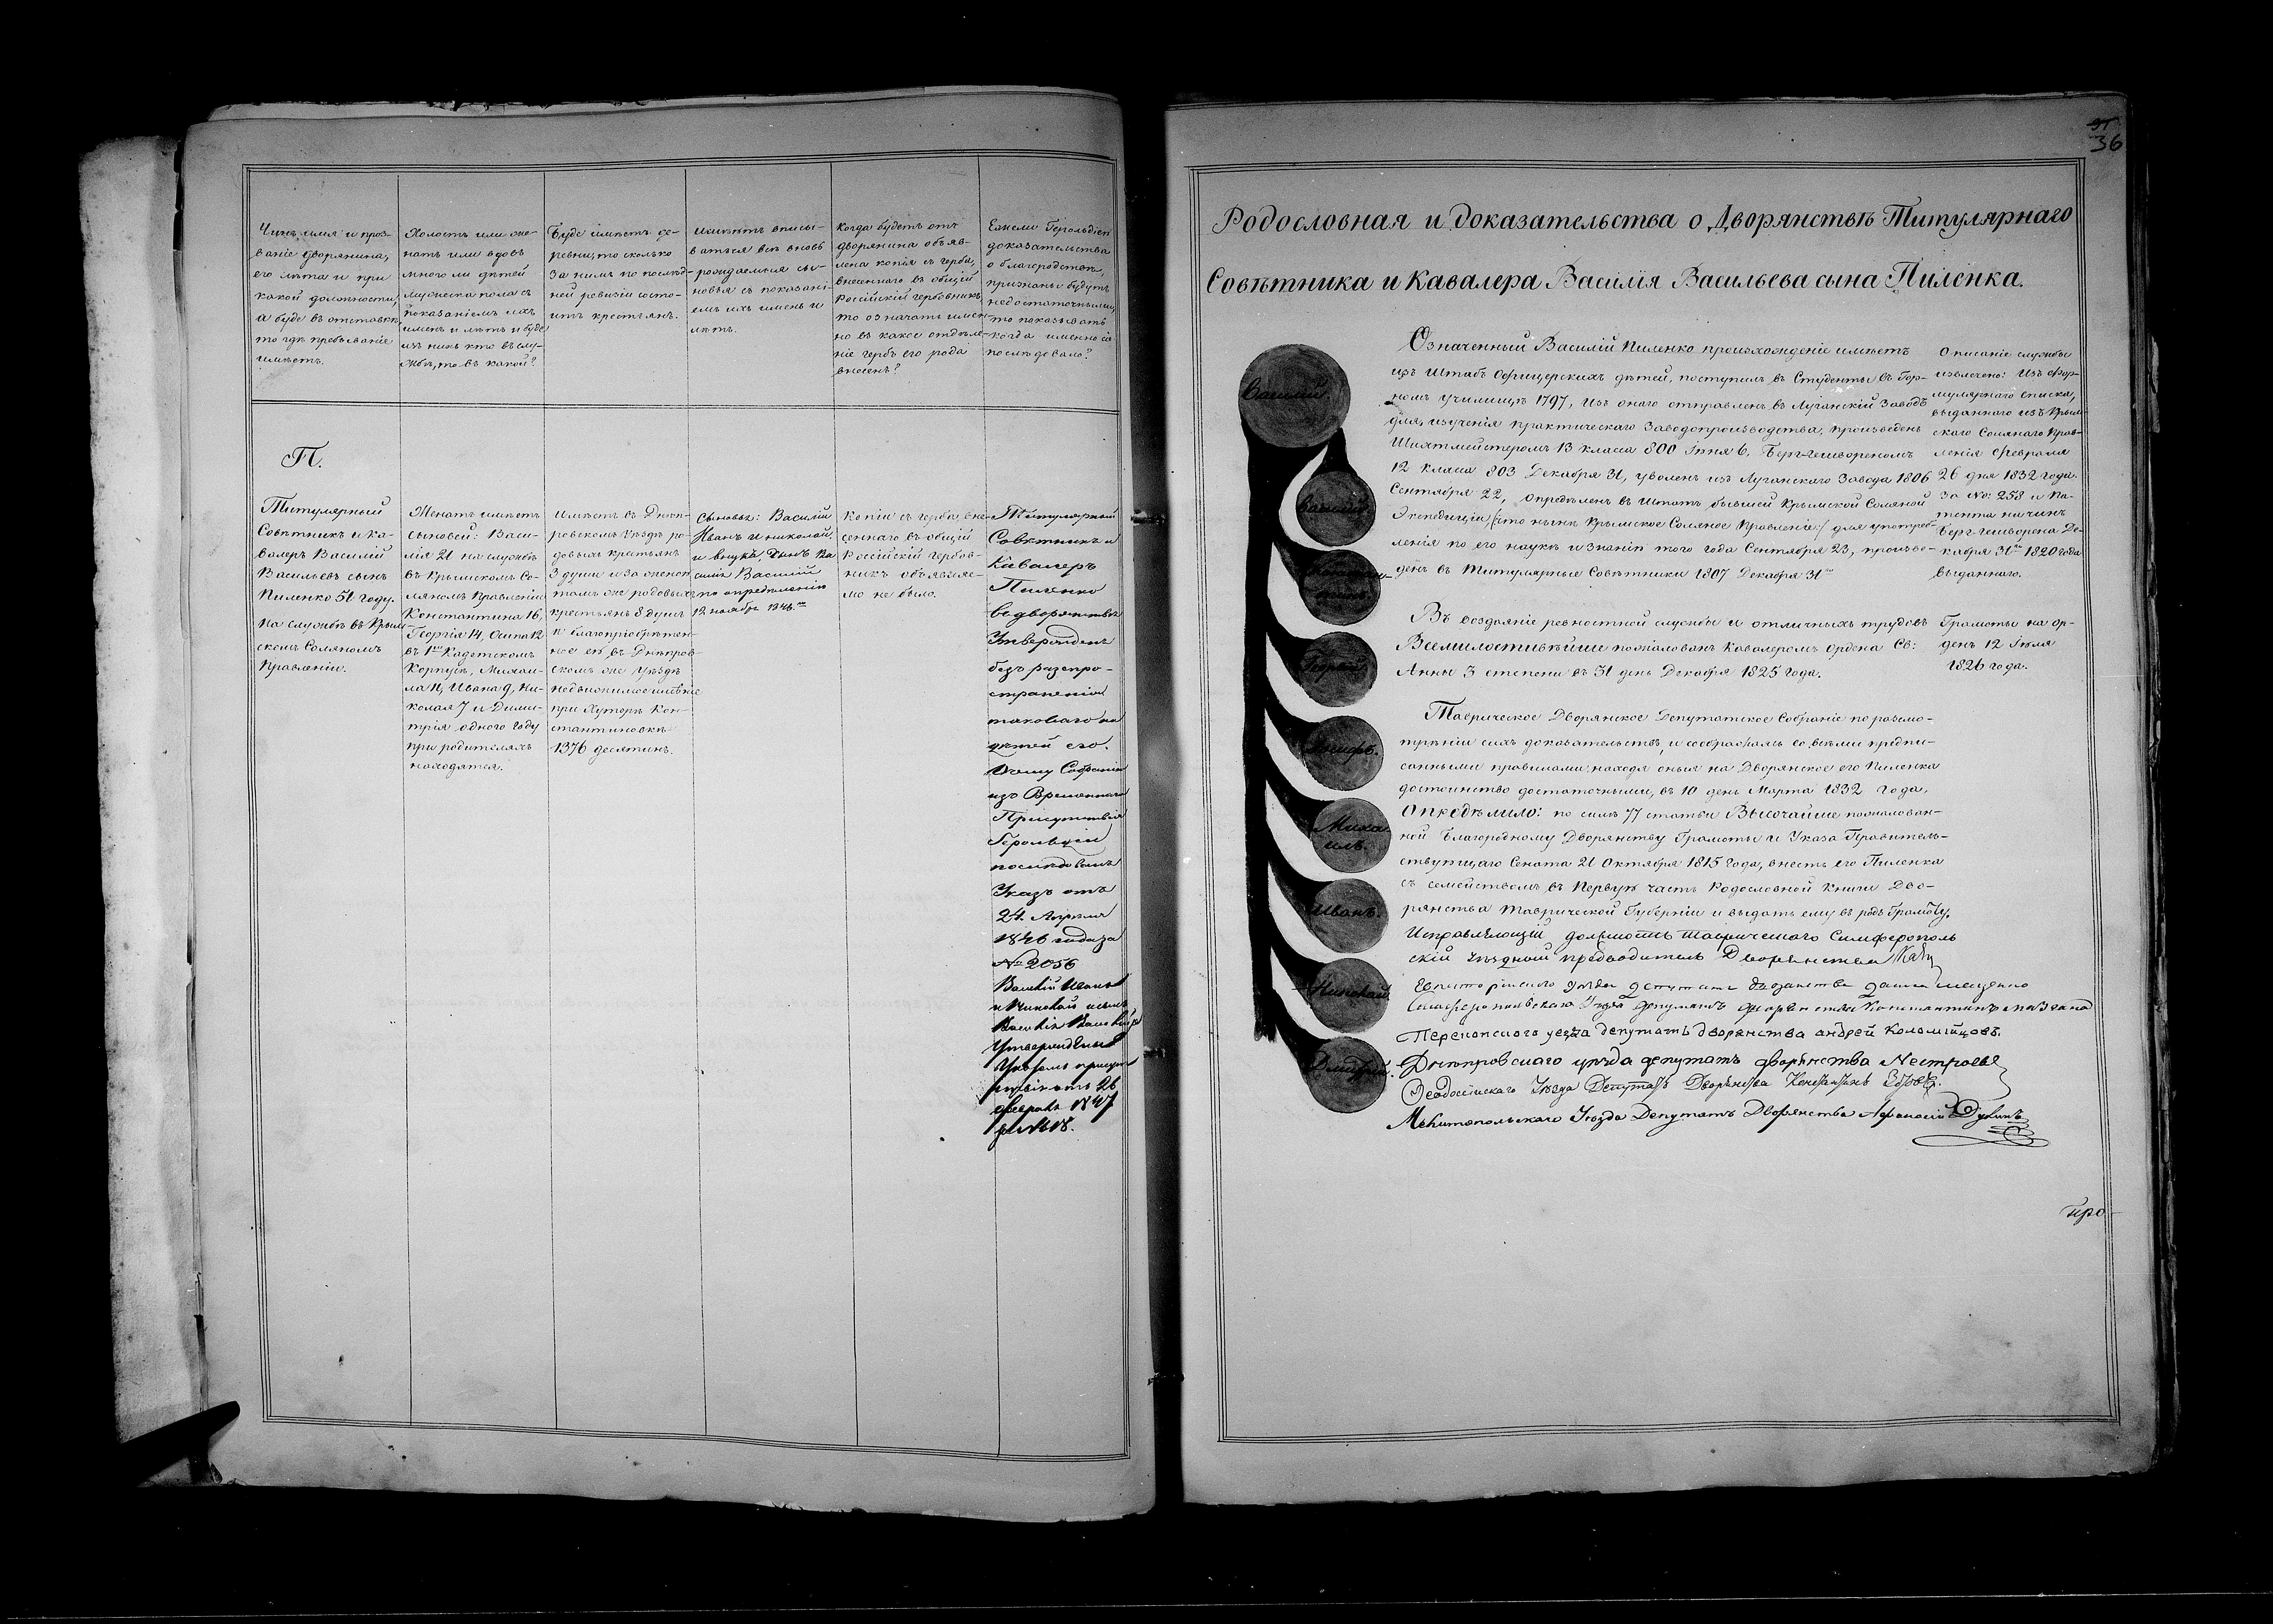 Чинъ, имя и проз-
ваніе дворянина,
его лѣта и при
какой должности,
а буде въ отставкѣ,
то гдѣ пребываніе
имѣетъ.
Холостъ или же-
натъ или вдовъ
много ли дѣтей
мужеска пола съ
показаніемъ ихъ
именъ и лѣтъ и буде
изъ нихъ кто въ слу-
жбѣ, то въ какой?
Буде имѣетъ де-
ревни, то сколько
за нимъ по послѣд-
ней ревизіи состо-
итъ крестьянъ.
имѣютъ вписы-
ваться всѣ вновь
рождаемыя сы-
новья съ показані-
емъ ихъ именъ и
лѣтъ.
Когда будетъ отъ
дворянина объяв-
лена копія съ герба,
внесеннаго въ общій
Россійскій гербовникъ,
то означать имен-
но въ какое отдѣле-
ніе гербъ его рода
внесенъ?
Ежели Герольдіею
доказательства
о благородствѣ,
признаны будутъ
недостаточными,
то показывать
когда именно сіе
послѣдовало?
П.
Титулярный
Совѣтникъ и Ка-
валеръ Василій
Васильевъ сынъ
Пиленко 51 году.
На службѣ въ Крым-
скомъ Соляномъ
Правленіи.
Женатъ имѣетъ
сыновей: Васи-
лія 21 на службѣ
въ Крымскомъ Со-
ляномъ Правленіи
Константина 16,
Георгія 14, Осипа 12
въ 1мъ Кадетскомъ
Корпусѣ, Михаи-
ла 11, Ивана 9, Ни-
колая 7 и Дими-
трія одного году
при родителяхъ
находятся.
Имѣетъ въ Днѣп-
ровскомъ Уѣздѣ ро-
довыхъ крестьянъ
3 души и за женою
тамъ же родовыхъ
крестьянъ 8 душъ
и благопріобрѣтен-
ное ею въ Днѣпров-
скомъ же Уѣздѣ
недвижимое имѣніе
при Хуторѣ Кон-
стантиновкѣ
1376 десятинъ.
Сыновья: Василій
Иванъ и Николай,
и внукъ, сынъ Ва
силія Василій
по опредѣленію
12 ноября 1846.го
Копіи съ герба, вне-
сеннаго въ общій
Россійскій гербов-
никъ объявляе-
мо не было.
Титулярный
Совѣтникъ и
Кавалеръ
Пиленко
въ дворянствѣ
Утвержденъ
безъ распро-
страненія
таковаго на
дѣтей его.
О чемъ Собранію
изъ Временнаго
Присутствія
Герольдіи
послѣдовалъ
Указъ отъ
24 Апрѣля
1846 года за
№ 2056
Василій Иванъ
и Николай и сынъ
Василія Василій
Утверждены
Указомъ присут
ствія отъ 26
февраля 1847
36
Родословная и доказательства о Дворянствѣ Титулярнаго
Совѣтника и Кавалера Василія Васильева сына Пиленка.
Василій.
Василій.
Георгій.
Іосифъ.
Миха
илъ.
Иванъ.
Николай.
Димитрій.
Означенный Василій Пиленко происхожденіе имѣетъ
изъ Штабъ Офицерскихъ дѣтей, поступилъ въ Студенты въ Гор-
номъ Училищѣ 1797, изъ онаго отправленъ въ Луганскій Заводъ
для изученія практическаго Заводопроизводства, произведенъ
Шихтмейстеромъ 13 класса 800 Іюня 6. Бергъ-гешвореномъ
12 класса 803 Декабря 31, уволенъ изъ Луганскаго Завода 1806
Сентября 22, опредѣленъ въ Штатъ бывшей Крымской Соляной
Экспедиціи /: что нынѣ Крымское Соляное Правленіе :/ для употреб-
ленія по его наукѣ и знанію того года Сентября 23, произве-
денъ въ Титулярные Совѣтники 1807 Декабря 31го
Описаніе службы
извлечено: Изъ фор-
мулярнаго списка,
выданнаго изъ Крым-
скаго Солянаго Прав-
ленія Февраля
26 дня 1832 года.
За №: 258 и Па-
тента на чинъ
Бергъ-гешворена Де-
кабря 31го 1820 года
выданнаго.
Въ воздаяніе ревностной службы и отличныхъ трудовъ
Всемилостивѣйше пожалованъ Кавалеромъ ордена Св:
Анны 3 степени въ 31 день Декабря 1825 года.
Грамоты на ор-
денъ 12 Іюля
1826 года.
Таврическое Дворянское Депутатское Собраніе по разсмо-
трѣніи сихъ доказательствъ, и сообразясь со всѣми предпи-
санными правилами, находя оныя на Дворянское его Пиленка
достоинство достаточными, въ 10 день Марта 1832 года,
Опредѣлило: по силѣ 77 статьи Высочайше пожалован-
ной Благородному Дворянству Грамоты и Указа Правитель-
ствующаго Сената 21 Октября 1815 года, внесть его Пиленка
съ семействомъ въ Первую часть Родословной Книги Дво-
рянства Таврической Губерніи и выдать ему въ родъ Грамоту.
Исправляющій должность Таврическаго Симферополь
скій Уѣздной предводитель Дворянства
Симферопольскаго Уѣзда Депутатъ Дворянства Константинъ
Перекопскаго уезда депутатъ дворянства андрей Коломійцовъ.
Днѣпровскаго уѣзда депутатъ дворянства Нестроевъ
Феодосійскаго Уѣзда Депутатъ Дворянства Константинъ
Мелитопольскаго Уѣзда Депутатъ Дворянства Афанасій
про-